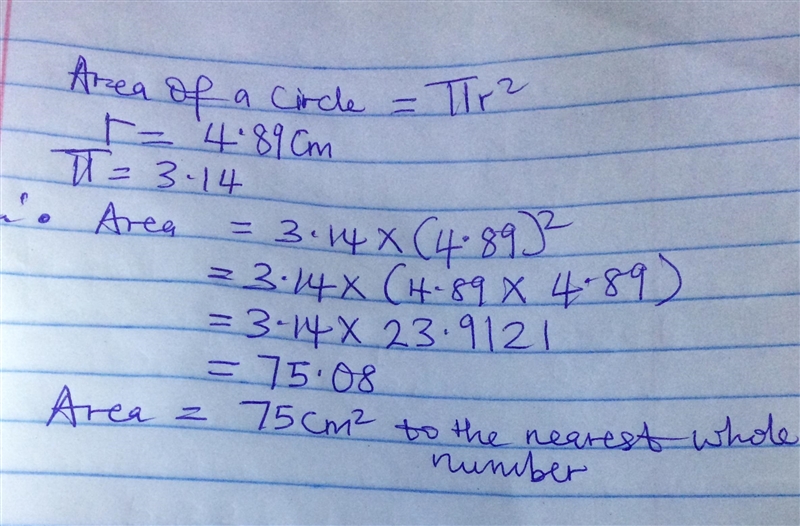 Area of a Circle = πr²
r = 4.89cm
π = 3.14
∴ Area = 3.14 × (4.89)²
= 3.14 × (4.89 × 4.89)
= 3.14 × 23.9121
= 75.08
Area = 75cm² to the nearest whole
number